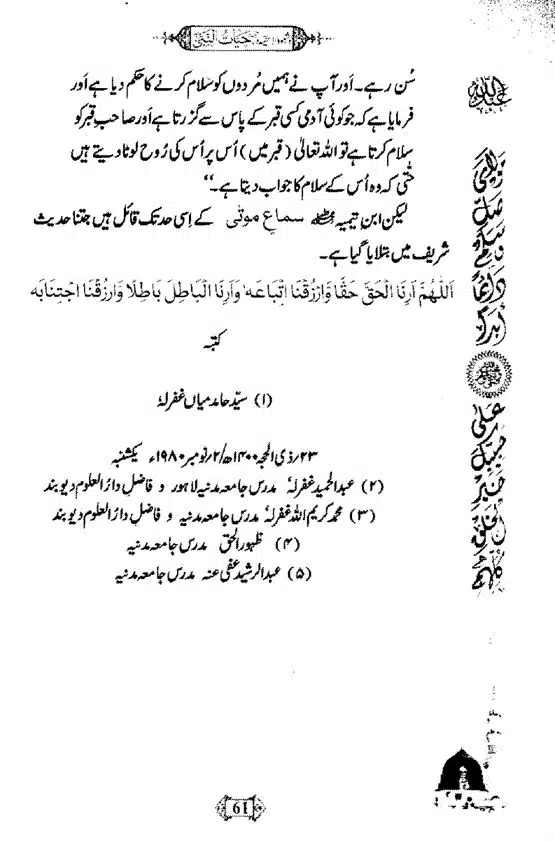 حیات النبی
سُن رہے۔ اَور آپ نے ہمیں مُردوں کو سَلام کرنے کا حکم دیا ہے اَور
فرمایا ہے کہ جو کوئی آدمی کسی قبر کے پاس سے گزرتا ہے اَور صاحبِ قبر کو
سلام کرتا ہے تو اللہ تعالیٰ (قبر میں) اُس پر اُس کی رُوح لوٹا دیتے ہیں
حتّٰی کہ وہ اُس کے سَلام کا جواب دیتا ہے۔“
لیکن ابنِ تیمیہ سماعِ موتٰی کے اِسی حد تک قائل ہیں جتنا حدیث
شریف میں بتلایا گیا ہے۔
اَللّٰهُمَّ اَرِنَا الْحَقَّ حَقًّا وَّارْزُقْنَا اتِّبَاعَهٗ وَاَرِنَا الْبَاطِلَ بَاطِلًا وَّارْزُقْنَا اجْتِنَابَهٗ
کتبہ
(۱) سیّد حامد میاں غفرلہٗ
۲۳؍ ذی الحجہ ۱۴۰۰ھ/۲؍ نومبر ۱۹۸۰ء یکشنبہ
(۲) عبدالحمید غفرلہٗ مدرس جامعہ مدنیہ لاہور و فاضل دارُالعلوم دیوبند
(۳) محمد کریم اللہ غفرلہٗ مدرس جامعہ مدنیہ و فاضل دارُالعلوم دیوبند
(۴) ظہورالحق مدرس جامعہ مدنیہ
(۵) عبدالرشید عفی عنہ مدرس جامعہ مدنیہ
یا رب صل وسلم دائما ابدا
علی حبیبک خیر الخلق کلھم
61